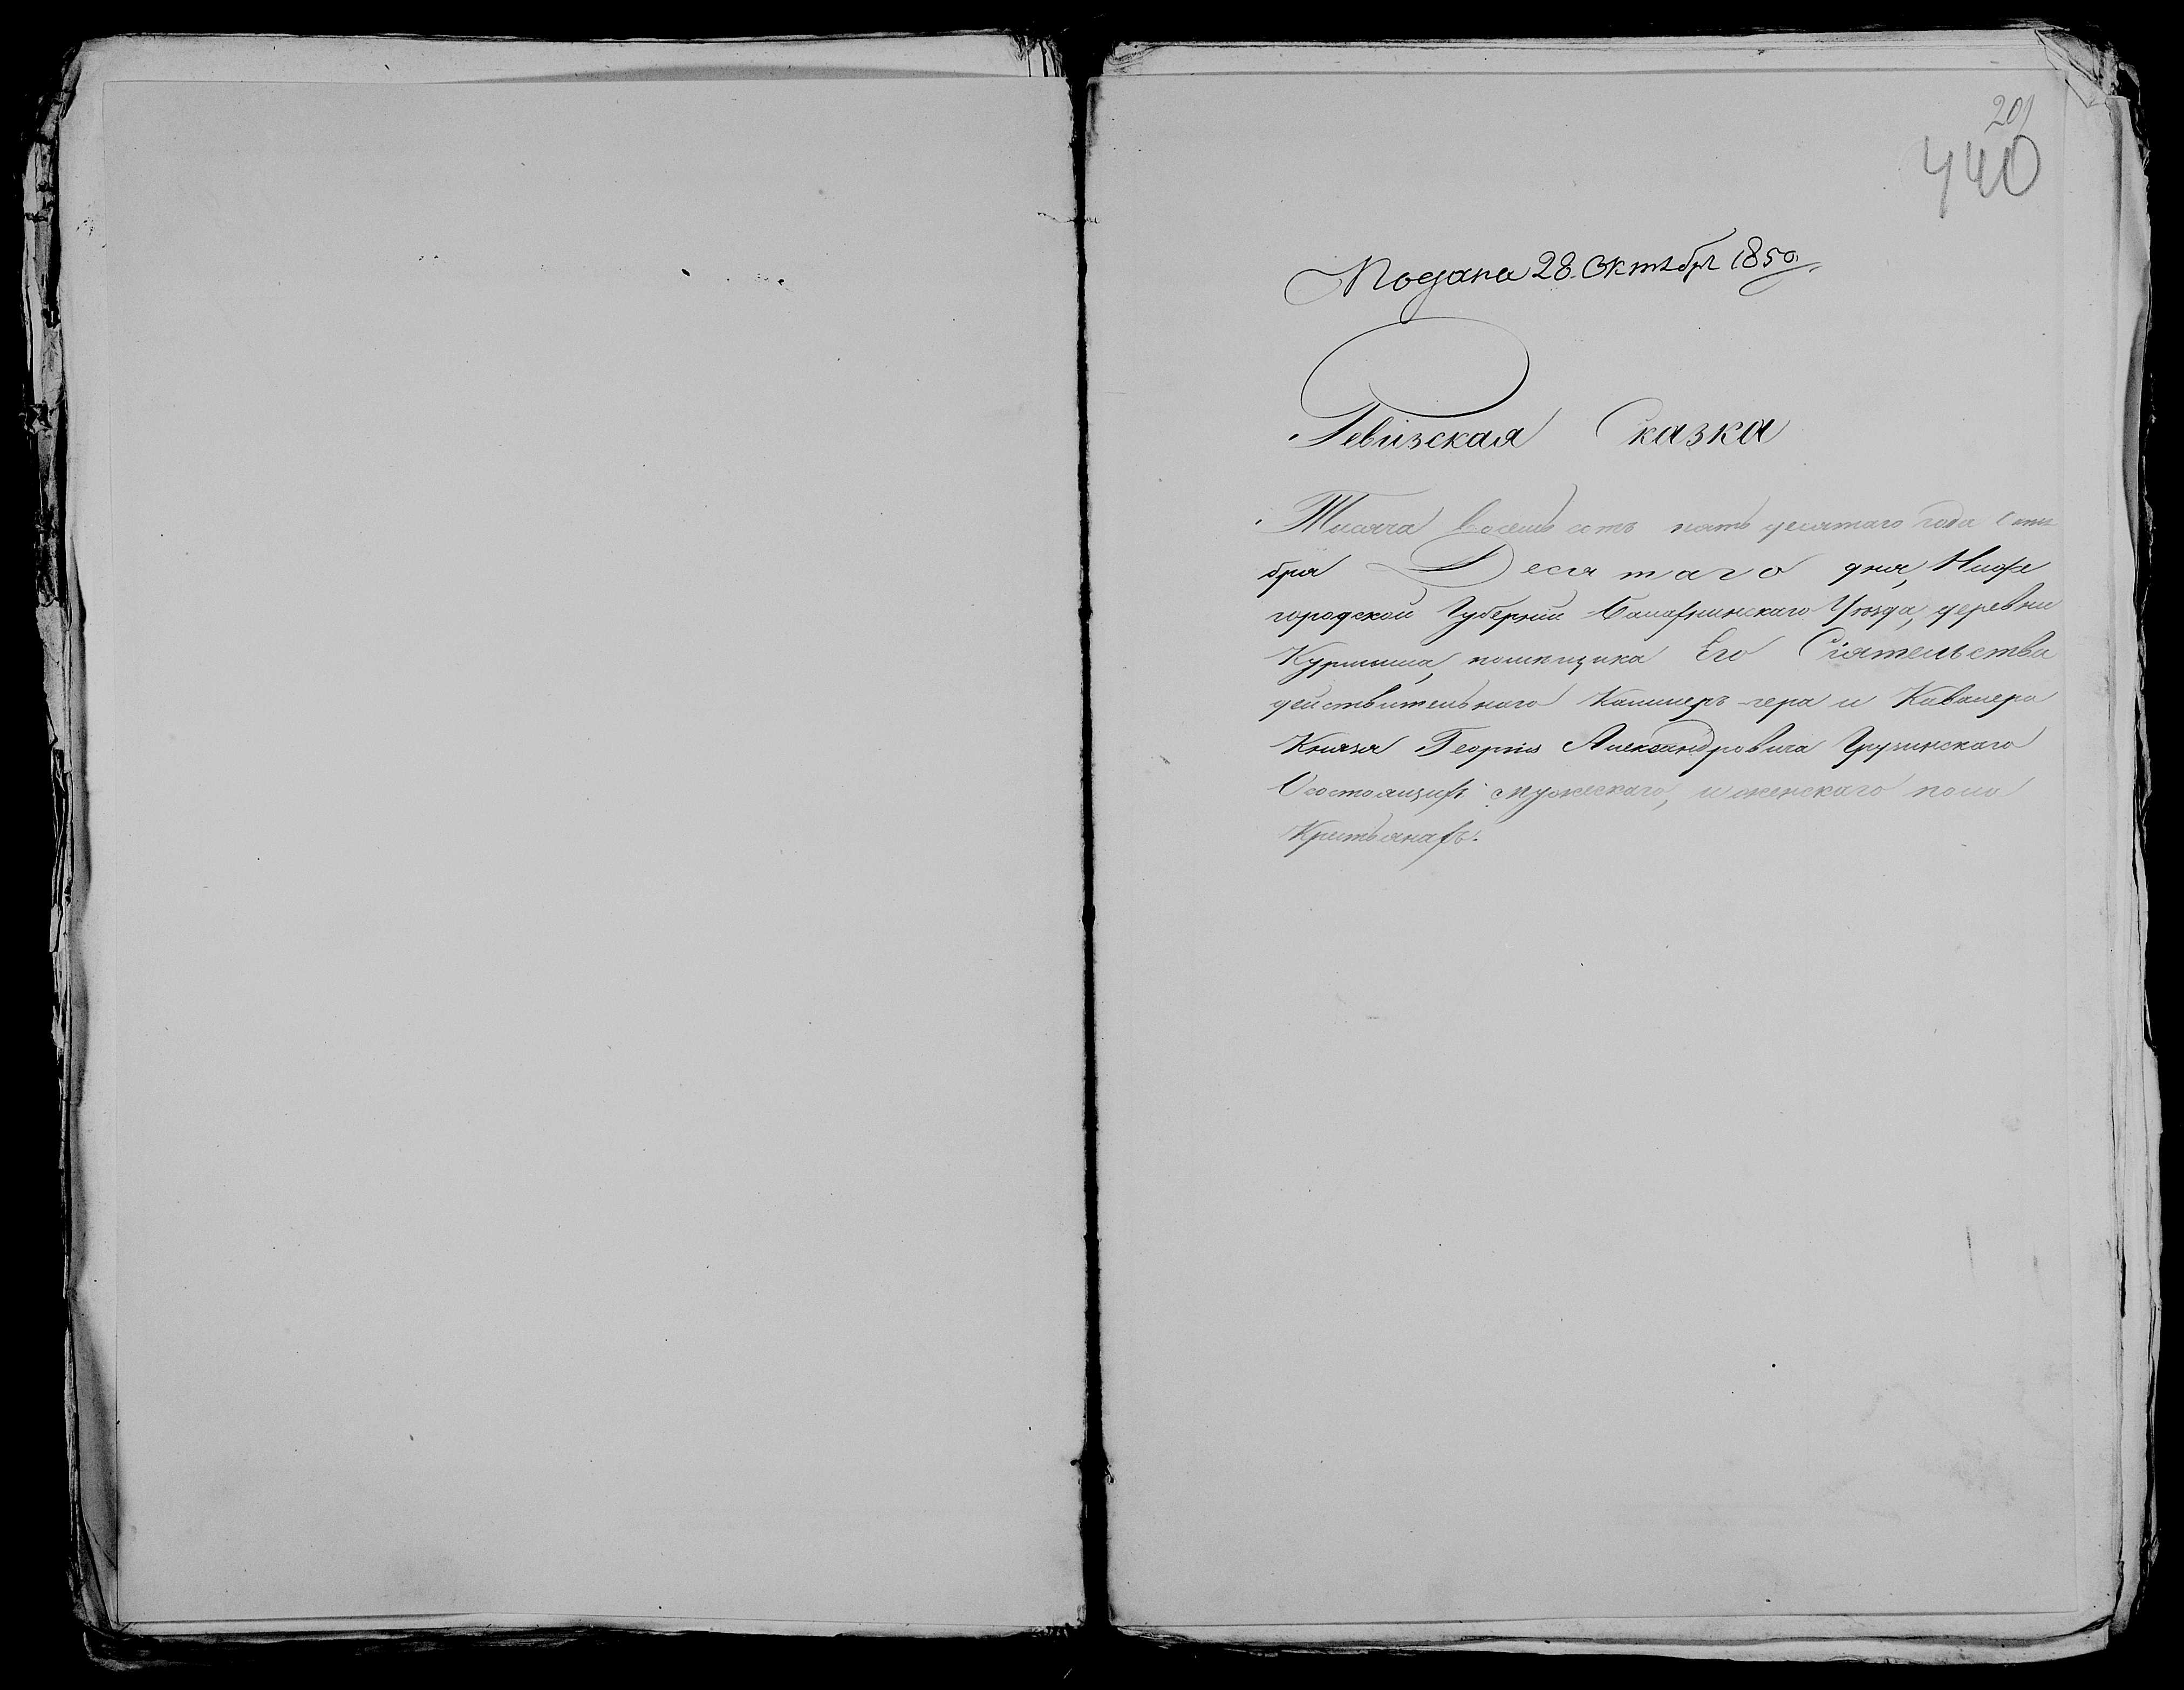 201
440
Подана 28. Октября 1850
Ревизская Сказка
Тысяча восемь сотъ пять десятаго года Октя
бря Десятаго дня, Ниже
городской Губернии Балахнинскаго Уѣзда, деревни
Курмыша, помѣщика Его Сіятельства
действительнаго Каммеръ-гера и Кавалера
Князя Георгія Александровича Грузинскаго
О состоящихъ мужескаго, и женскаго пола
Крестьянахъ.